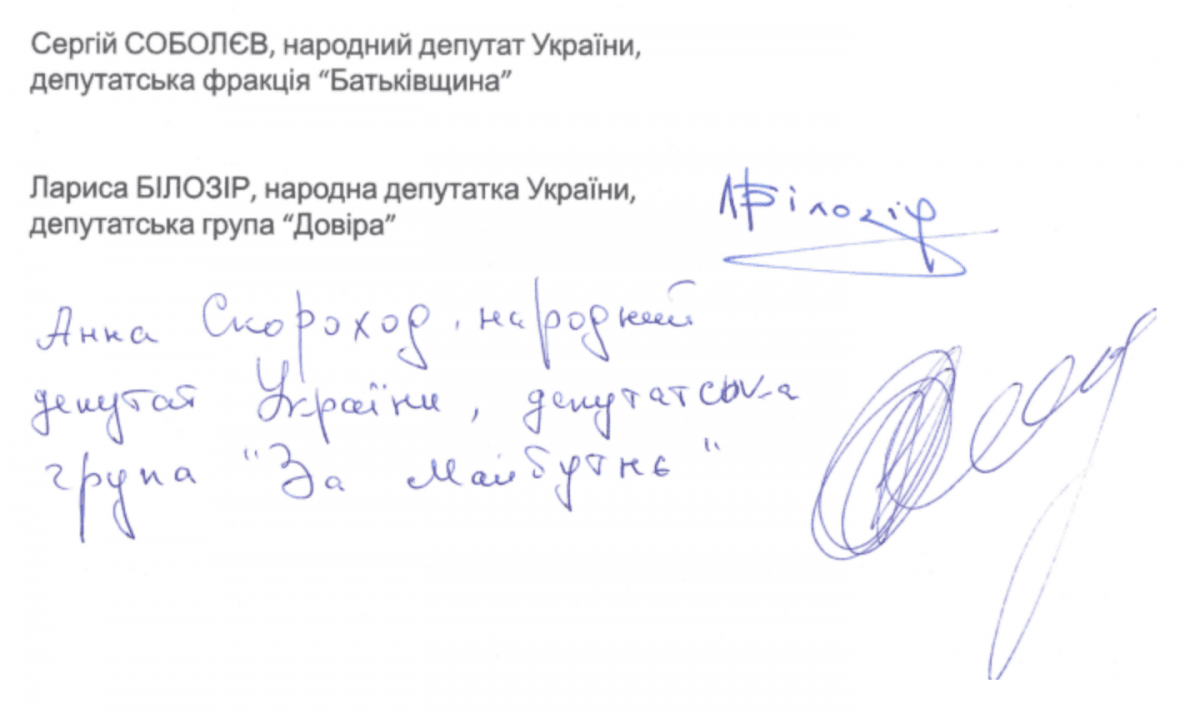 Сергій СОБОЛЄВ, народний депутат України,
депутатська фракція “Батьківщина”
Лариса БІЛОЗІР, народна депутатка України,
депутатська група “Довіра”
ЛБілозір
Анна Скороход, народний
депутат України, депутатська
група "За Майбутнє"